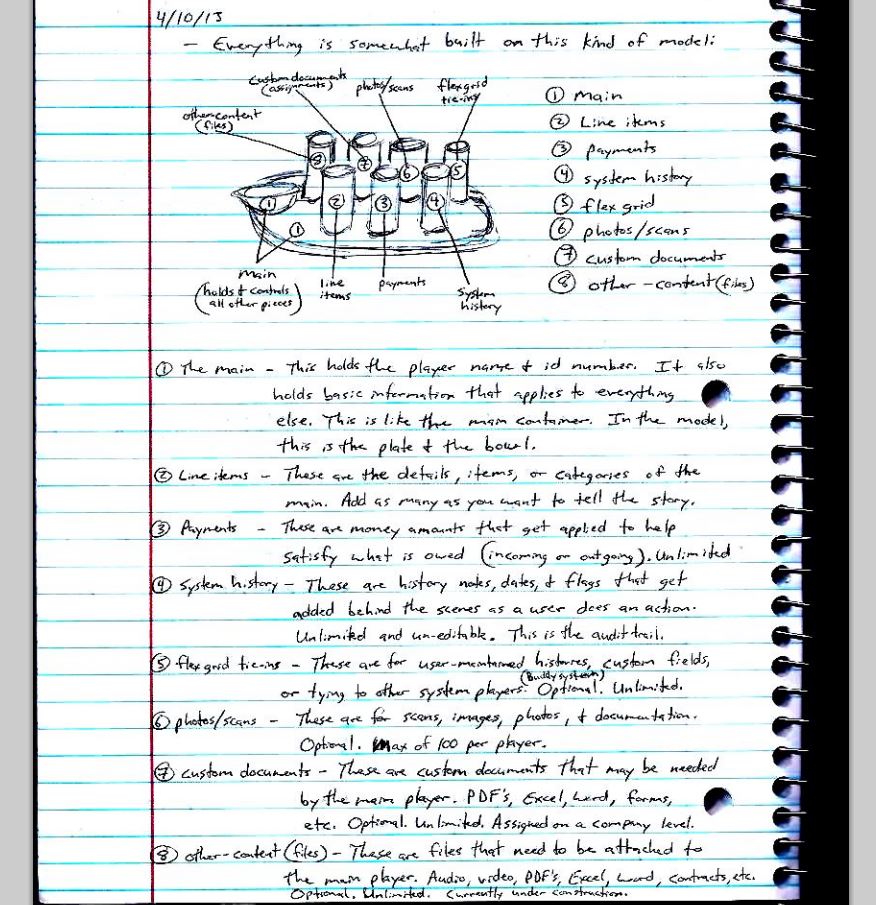 4/10/13
- Everything is somewhat built on this kind of model:
custom documents
(assignments)
photos/scans
flex grid
tie-ins
other content
(files)
8
7
6
5
1
2
3
4
1
main
(holds & controls
all other pieces)
line
items
payments
System
history
① main
② Line items
③ payments
④ system history
⑤ flex grid
⑥ photos/scans
⑦ custom documents
⑧ other-content (files)
① The main - This holds the player name & id number. It also
holds basic information that applies to everything
else. This is like the main container. In the model,
this is the plate & the bowl.
② Line items - These are the details, items, or categories of the
main. Add as many as you want to tell the story.
③ Payments - These are money amounts that get applied to help
satisfy what is owed (incoming or outgoing). Unlimited
④ System history - These are history notes, dates, & flags that get
added behind the scenes as a user does an action.
Unlimited and un-editable. This is the audit trail.
⑤ flex grid tie-ins - These are for user-maintained histories, custom fields,
(Buddy system)
or tying to other system players. Optional. Unlimited.
⑥ photos/scans - These are for scans, images, photos, & documentation.
Optional. Max of 100 per player.
⑦ custom documents - These are custom documents that may be needed
by the main player. PDF's, Excel, word, forms,
etc. Optional. Unlimited. Assigned on a company level.
⑧ other-content (files) - These are files that need to be attached to
the main player. Audio, video, PDF's, Excel, word, contracts, etc.
Optional. Unlimited. Currently under construction.